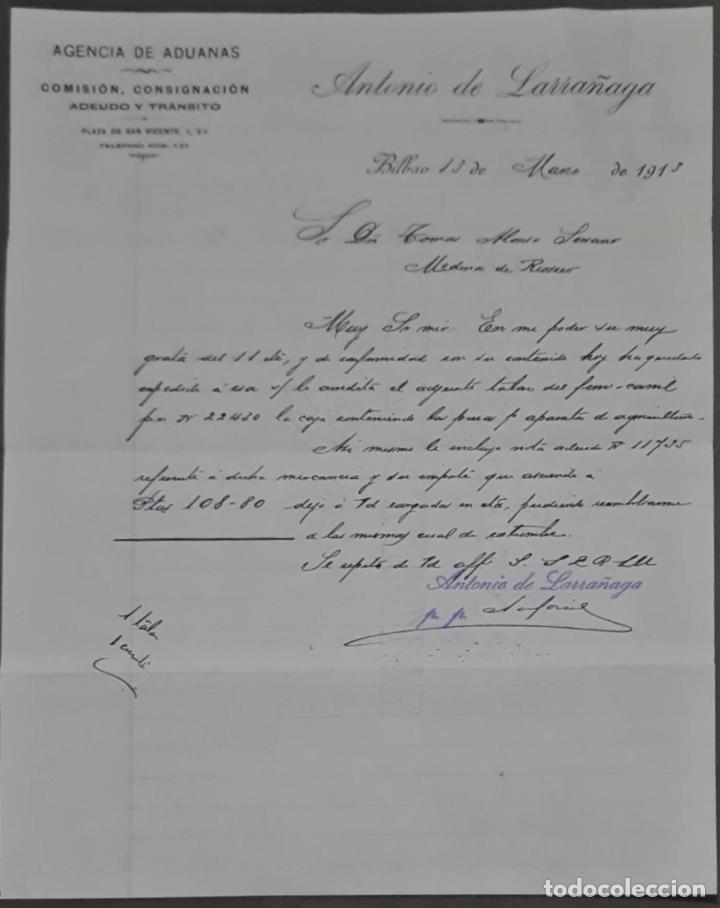 AGENCIA DE ADUANAS
COMISIÓN, CONSIGNACIÓN
ADEUDO Y TRÁNSITO
PLAZA DE SAN VICENTE, 1, 2º
TELÉFONO NÚM.
Antonio de Larrañaga
Bilbao 13 de Marzo de 1913
Sr Dn Tomas Alonso Serrano
Medina de Rioseco
Muy Sr mio: En mi poder su muy
grata del 11 cte, y de conformidad con su contenido hoy ha quedado
expedida á esa s/ lo acredita el adjunto talon del ferro-carril
nº 22420 la caja conteniendo las piezas p aparatos d agricultura.
Asi mismo le incluyo nota adeudo nº 11735
referente á dicha mercancia y su importe que asciende á
Ptas 108-80 dejo á Vd cargadas en cta, pudiendo reembolsarme
de las mismas cual de costumbre.
Se repite de Vd aff S. S
Antonio de Larrañaga
p. p.
1 talon
todocoleccion